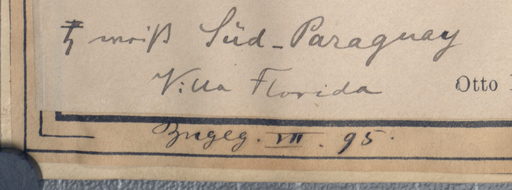 ♄ weiß Süd-Paraguay
Villa Florida
Otto
Bngeg. VII. 95.